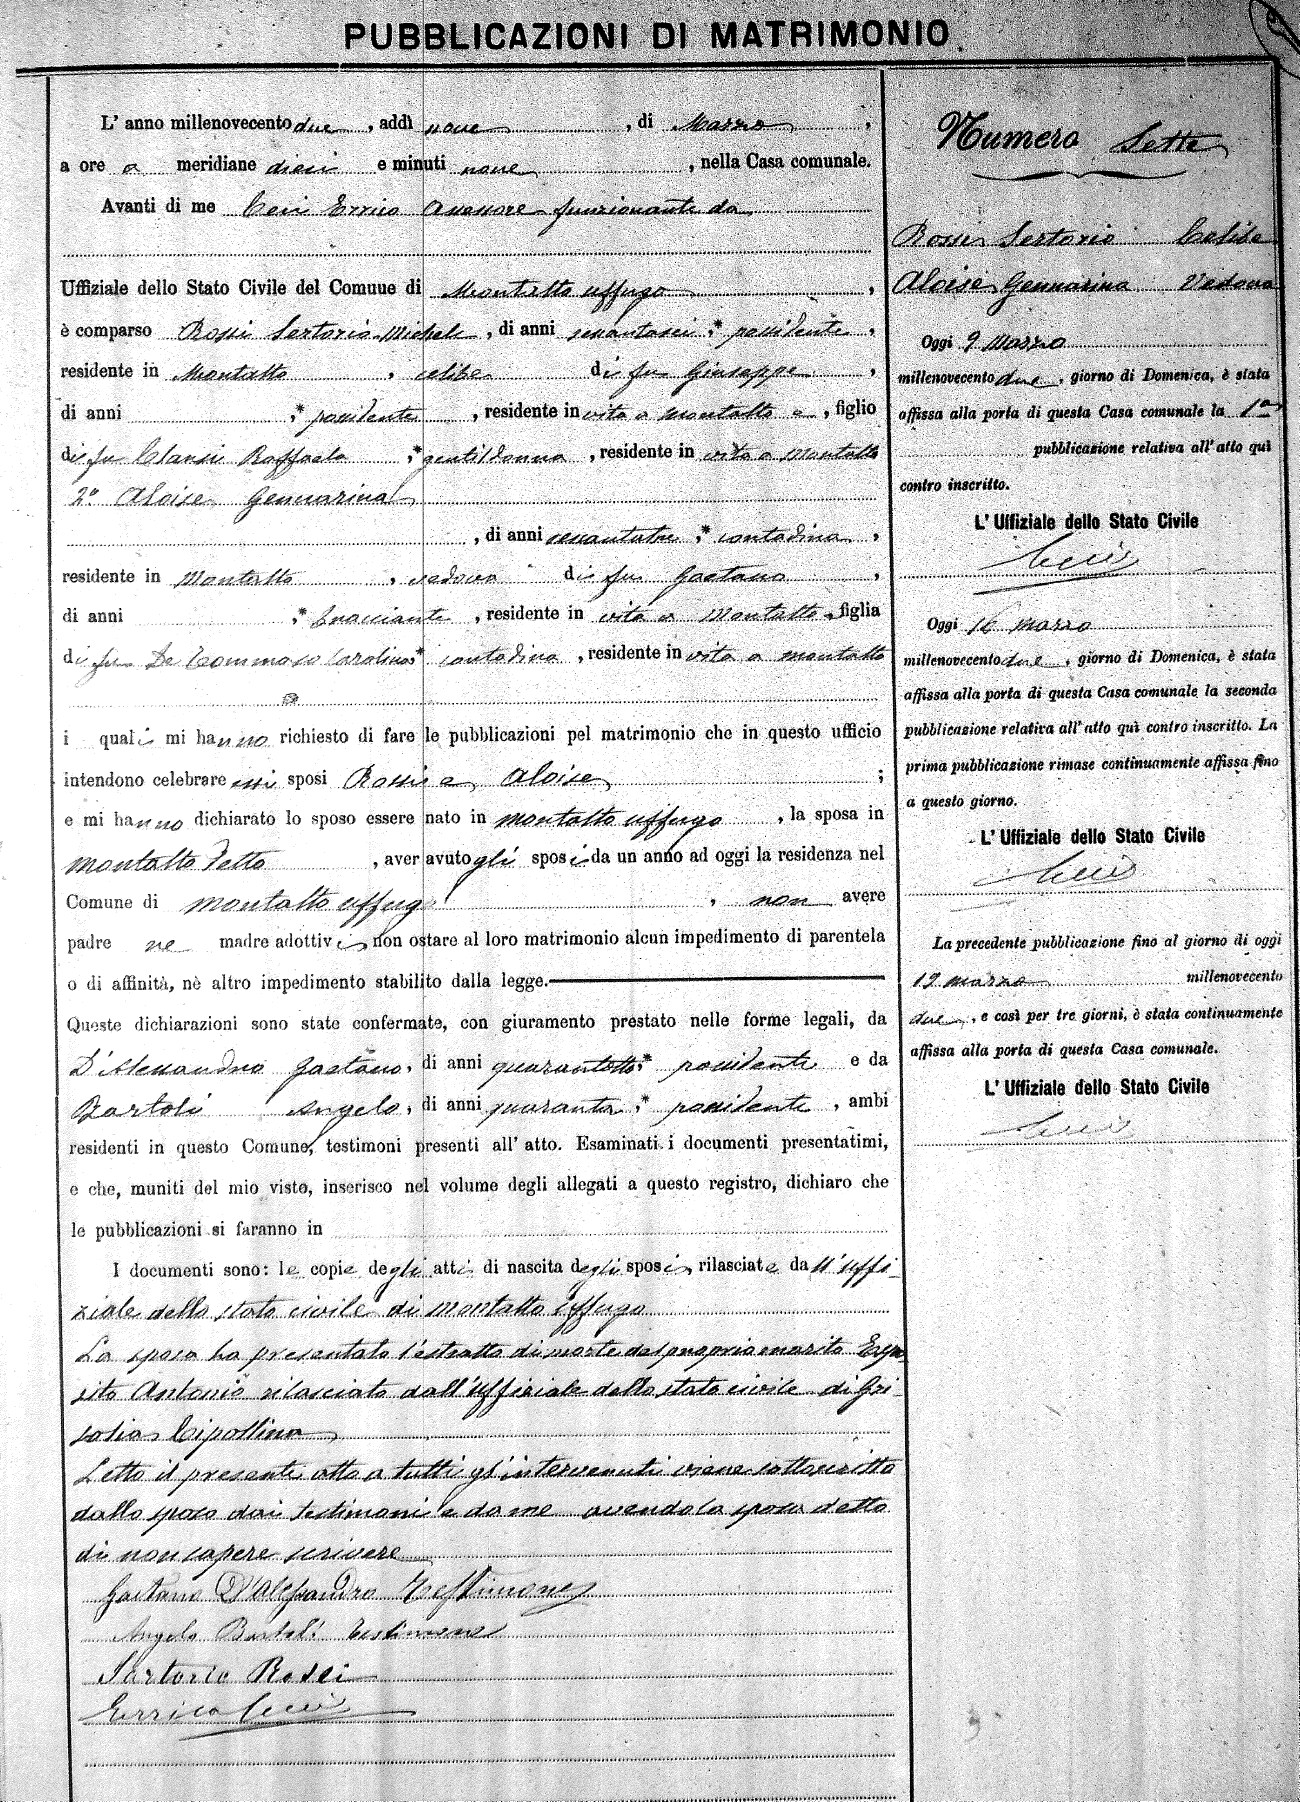 PUBBLICAZIONI DI MATRIMONIO
L' anno millenovecento due, addì nove, di Marzo,
a ore a meridiane dieci e minuti nove, nella Casa comunale.
Avanti di me Ceci Errico Assessore funzionante da
Uffiziale dello Stato Civile del Comune di Montalto Uffugo,
è comparso Rossi Sertorio Michele, di anni sessantasei,* possidente,
residente in Montalto, celibe di fu Giuseppe,
di anni ,* possidente, residente in vita a Montalto e, figlio
di fu Clausi Raffaela ,* gentildonna, residente in vita a Montalto
2° Aloise Gennarina
, di anni sessantatre,* contadina,
residente in Montalto, vedova di fu Gaetano,
di anni ,* bracciante, residente in vita a Montalto, figlia
di fu De Tommaso Carolina,* contadina, residente in vita a Montalto
i quali mi hanno richiesto di fare le pubblicazioni pel matrimonio che in questo ufficio
intendono celebrare essi sposi Rossi e Aloise ;
e mi hanno dichiarato lo sposo essere nato in Montalto Uffugo, la sposa in
Montalto detto, aver avuto gli sposi da un anno ad oggi la residenza nel
Comune di Montalto Uffugo, non avere
padre ne madre adottivi, non ostare al loro matrimonio alcun impedimento di parentela
o di affinità, nè altro impedimento stabilito dalla legge.
Queste dichiarazioni sono state confermate, con giuramento prestato nelle forme legali, da
D'Alessandro Gaetano, di anni quarantotto,* possidente e da
Bartoli Angelo, di anni quaranta,* possidente, ambi
residenti in questo Comune, testimoni presenti all' atto. Esaminati i documenti presentatimi,
e che, muniti del mio visto, inserisco nel volume degli allegati a questo registro, dichiaro che
le pubblicazioni si faranno in
I documenti sono: le copie degli atti di nascita degli sposi, rilasciate dall'uffi-
ziale dello stato civile di Montalto Uffugo
La sposa ha presentato l'estratto di morte del proprio marito Espo
sito Antonio rilasciato dall'Uffiziale dello stato civile di Gri-
solia Cipollina
Letto il presente atto a tutti gl'intervenuti viene sottoscritto
dallo sposo dai testimoni e da me avendo la sposa detto
di non sapere scrivere
Gaetano D'Alessandro Testimone
Angelo Bartoli testimone
Sartorio Rossi
Errico Ceci
Numero Sette
Rossi Sertorio Celibe
Aloise Gennarina Vedova
Oggi 9 Marzo
millenovecento due, giorno di Domenica, è stata
affissa alla porta di questa Casa comunale la 1a
pubblicazione relativa all' atto quì
contro inscritto.
L' Uffiziale dello Stato Civile
Ceci
Oggi 16 marzo
millenovecento due, giorno di Domenica, è stata
affissa alla porta di questa Casa comunale la seconda
pubblicazione relativa all' atto quì contro inscritto. La
prima pubblicazione rimase continuamente affissa fino
a questo giorno.
L' Uffiziale dello Stato Civile
Ceci
La precedente pubblicazione fino al giorno di oggi
19 marzo millenovecento
due, e così per tre giorni, è stata continuamente
affissa alla porta di questa Casa comunale.
L' Uffiziale dello Stato Civile
Ceci